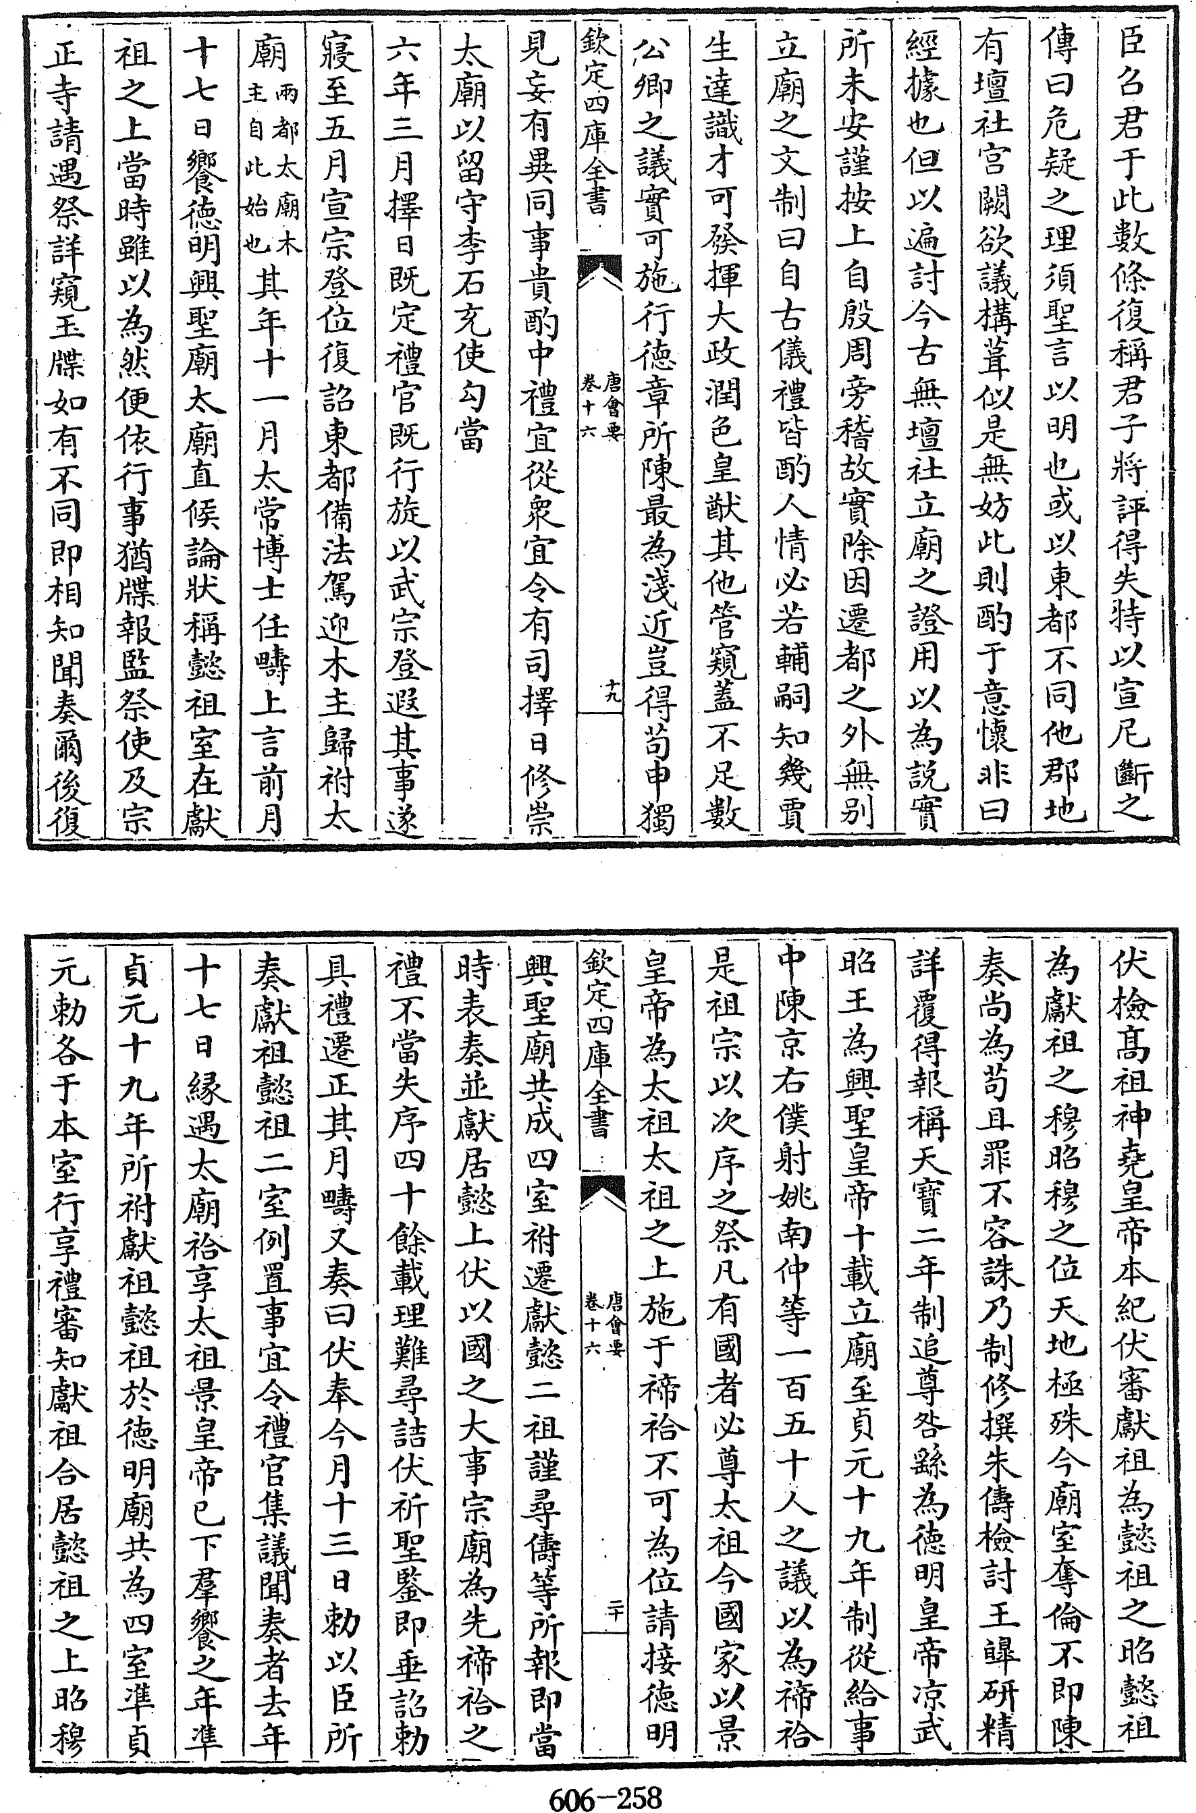 臣名君于此數條復稱君子將評得失特以宣尼斷之
傳曰危疑之理須聖言以明也或以東都不同他郡地
有壇社宫闕欲議構葺似是無妨此則酌于意懷非曰
經據也但以遍討今古無壇社立廟之證用以為説實
所未安謹按上自殷周旁稽故實除因遷都之外無别
立廟之文制曰自古儀禮皆酌人情必若輔嗣知幾賈
生達識才可發揮大政潤色皇猷其他管窺蓋不足數
公卿之議實可施行德章所陳最為淺近豈得茍申獨
欽定四庫全書
唐會要
卷十六
十九
見妄有異同事貴酌中禮宜從衆宜令有司擇日修崇
太廟以留守李石充使勾當
六年三月擇日既定禮官既行旋以武宗登遐其事遂
寢至五月宣宗登位復詔東都備法駕迎木主歸祔太
廟兩都太廟木主自此始也其年十一月太常博士任疇上言前月
十七日饗德明興聖廟太廟直候論狀稱懿祖室在獻
祖之上當時雖以為然便依行事猶牒報監祭使及宗
正寺請遇祭詳窺玉牒如有不同即相知聞奏爾後復
伏檢髙祖神堯皇帝本紀伏審獻祖為懿祖之昭懿祖
為獻祖之穆昭穆之位天地極殊今廟室奪倫不即陳
奏尚為茍且罪不容誅乃制修撰朱儔檢討王皞研精
詳覆得報稱天寶二年制追尊咎繇為德明皇帝凉武
昭王為興聖皇帝十載立廟至貞元十九年制從給事
中陳京右僕射姚南仲等一百五十人之議以為禘祫
是祖宗以次序之祭凡有國者必尊太祖今國家以景
皇帝為太祖太祖之上施于禘祫不可為位請接德明
欽定四庫全書
唐會要
卷十六
二十
興聖廟共成四室祔遷獻懿二祖謹尋儔等所報即當
時表奏並獻居懿上伏以國之大事宗廟為先禘祫之
禮不當失序四十餘載理難尋詰伏祈聖鑒即垂詔勅
具禮遷正其月疇又奏曰伏奉今月十三日勅以臣所
奏獻祖懿祖二室例置事宜令禮官集議聞奏者去年
十七日緣遇太廟祫享太祖景皇帝已下羣饗之年準
貞元十九年所祔獻祖懿祖於德明廟共為四室準貞
元勅各于本室行享禮審知獻祖合居懿祖之上昭穆
606-258